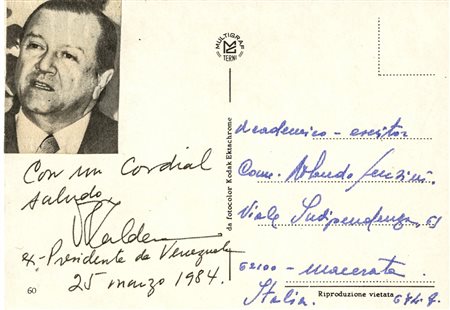 MULTIGRAF
TERNI
da fotocolor Kodak Ektachrome
Con un Cordial
saludo,
ex-Presidente de Venezuela
25 marzo 1984.
60
Academico - escritor
Comm. Rolando
Viale Indipendenza, 61
62100 - Macerata
Italia.
Riproduzione vietata